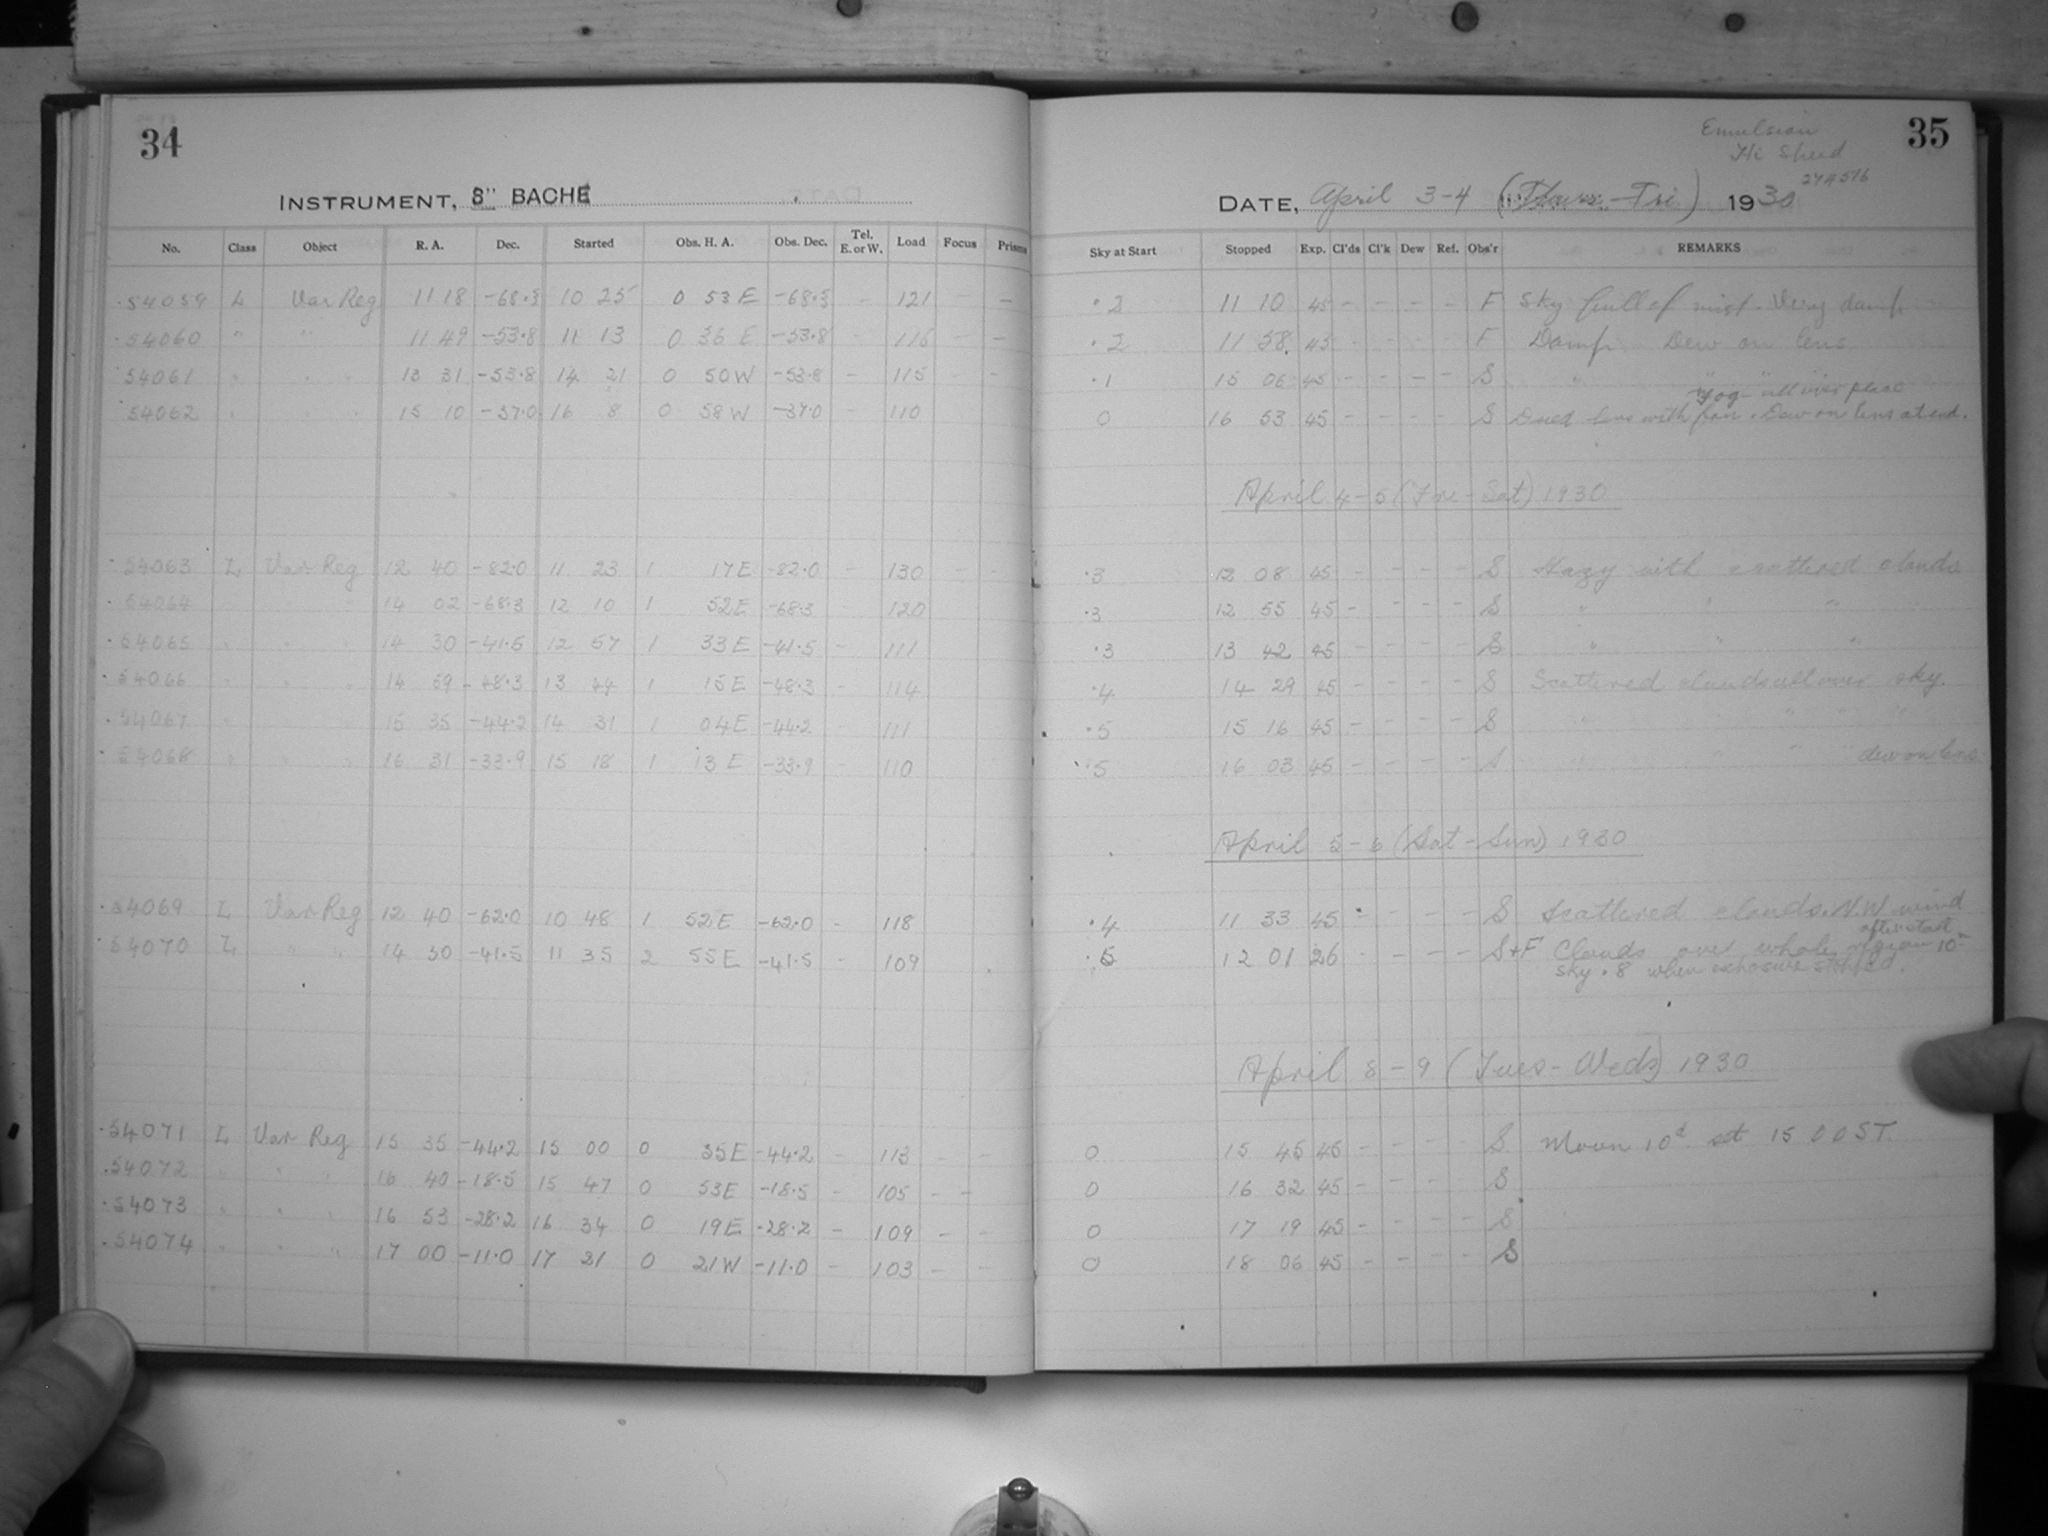 34
INSTRUMENT, 8" BACHE
No. Class Object R. A. Dec. Started Obs. H. A. Obs. Dec. Tel. E. or W. Load Focus Prisms
54059 L Var Reg 11 18 -68.3 10 25 0 53 E -68.3 - 121 - -
54060 " " 11 49 -53.8 11 13 0 36 E -53.8 - 115 - -
54061 " " " 13 31 -53.8 14 21 0 50 W -53.8 - 115 -
54062 " " " 15 10 -37.0 16 8 0 58 W -37.0 - 110
54063 L Var Reg 12 40 -82.0 11 23 1 17 E -82.0 - 130 - -
54064 " 14 02 -68.3 12 10 1 52 E -68.3 - 120
54065 " " " 14 30 -41.5 12 57 1 33 E -41.5 - 111
54066 " " " 14 59 -48.3 13 44 1 15 E -48.3 - 114
54067 " " " 15 35 -44.2 14 31 1 04 E -44.2 - 111
54068 " " " 16 31 -33.9 15 18 1 13 E -33.9 - 110
54069 L Var Reg 12 40 -62.0 10 48 1 52 E -62.0 - 118
54070 L " " 14 30 -41.5 11 35 2 55 E -41.5 - 109
54071 L Var Reg 15 35 -44.2 15 00 0 35 E -44.2 - 113 - -
54072 " " " 16 40 -18.5 15 47 0 53 E -18.5 - 105 - -
54073 " " " 16 53 -28.2 16 34 0 19 E -28.2 - 109 - -
54074 " " " 17 00 -11.0 17 21 0 21 W -11.0 - 103 - -
35
Emulsion
Hi Speed
DATE, April 3-4 (Thurs.-Fri) 1930
Sky at Start Stopped Exp. Cl'ds Cl'k Dew Ref. Obs'r REMARKS
.2 11 10 45 - - - - F Sky full of mist. Very damp.
.2 11 58 45 - - - - F Damp. Dew on lens
.1 15 06 45 - - - - S " " "
Fog all over place
0 16 53 45 - - - - S Dried lens with fan. Dew on lens at end.
April 4-5 (Fri-Sat) 1930
.3 12 08 45 - - - - S Hazy with scattered clouds
.3 12 55 45 - - - - S " " "
.3 13 42 45 - - - - S " " "
.4 14 29 45 - - - - S Scattered clouds all over sky.
.5 15 16 45 - - - - S " " " " "
.5 16 03 45 - - - - S " " " " dew on lens
April 5-6 (Sat-Sun) 1930
.4 11 33 45 - - - - S Scattered clouds. N.W. wind
after start
.5 12 01 26 - - - S+F Clouds over whole region 10m
sky .8 when exposure stopped.
April 8-9 (Tues-Weds) 1930
0 15 45 45 - - - - S Moon 10d set 15 00 ST.
0 16 32 45 - - - - S
0 17 19 45 - - - - S
0 18 06 45 - - - - S